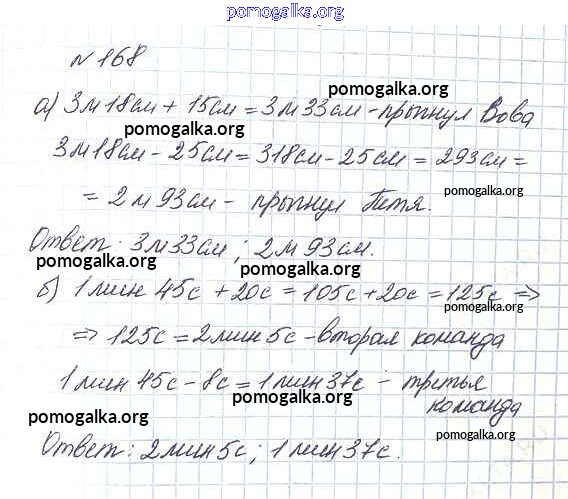 pomogalka.org
№168
pomogalka.org
а) 3м 18см + 15см = 3м 33см - прыгнул Вова
pomogalka.org
3м 18см - 25см = 318см - 25см = 293см =
pomogalka.org
= 2м 93см - прыгнул Петя.
Ответ: 3м 33см; 2м 93см.
pomogalka.org pomogalka.org
б) 1мин 45с + 20с = 105с + 20с = 125с ⇒
pomogalka.org
⇒ 125с = 2мин 5с - вторая команда
1мин 45с - 8с = 1мин 37с - третья
pomogalka.org
команда
pomogalka.org
Ответ: 2мин 5с; 1мин 37с.
pomogalka.org